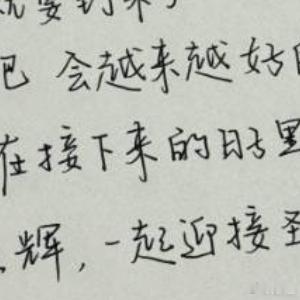 就要到来了
吧 会越来越好
在接下来的日子里
辉,一起迎接圣